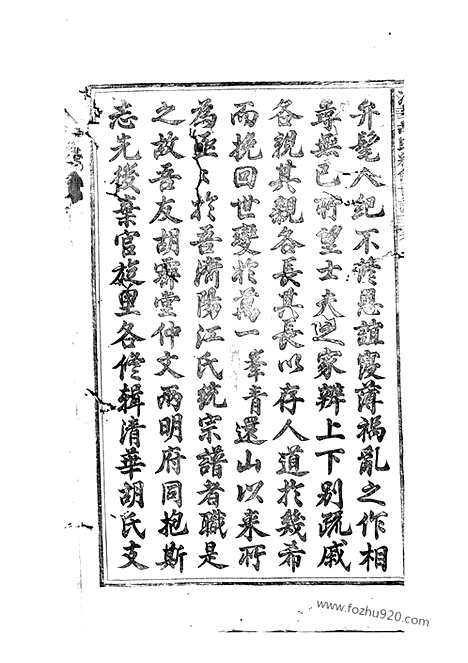 弁髦人紀不修恩誼寖薄禍亂之作相
尋無已所望士夫之家辨上下別疏戚
各親其親各長其長以存人道於幾希
而挽回世變於萬一峯青還山以來所
為臣〻於吾濟陽江氏統宗譜者職是
之故吾友胡霽堂仲文兩明府同抱斯
志先後棄官旋里各修輯清華胡氏支
www.fozhu920.com